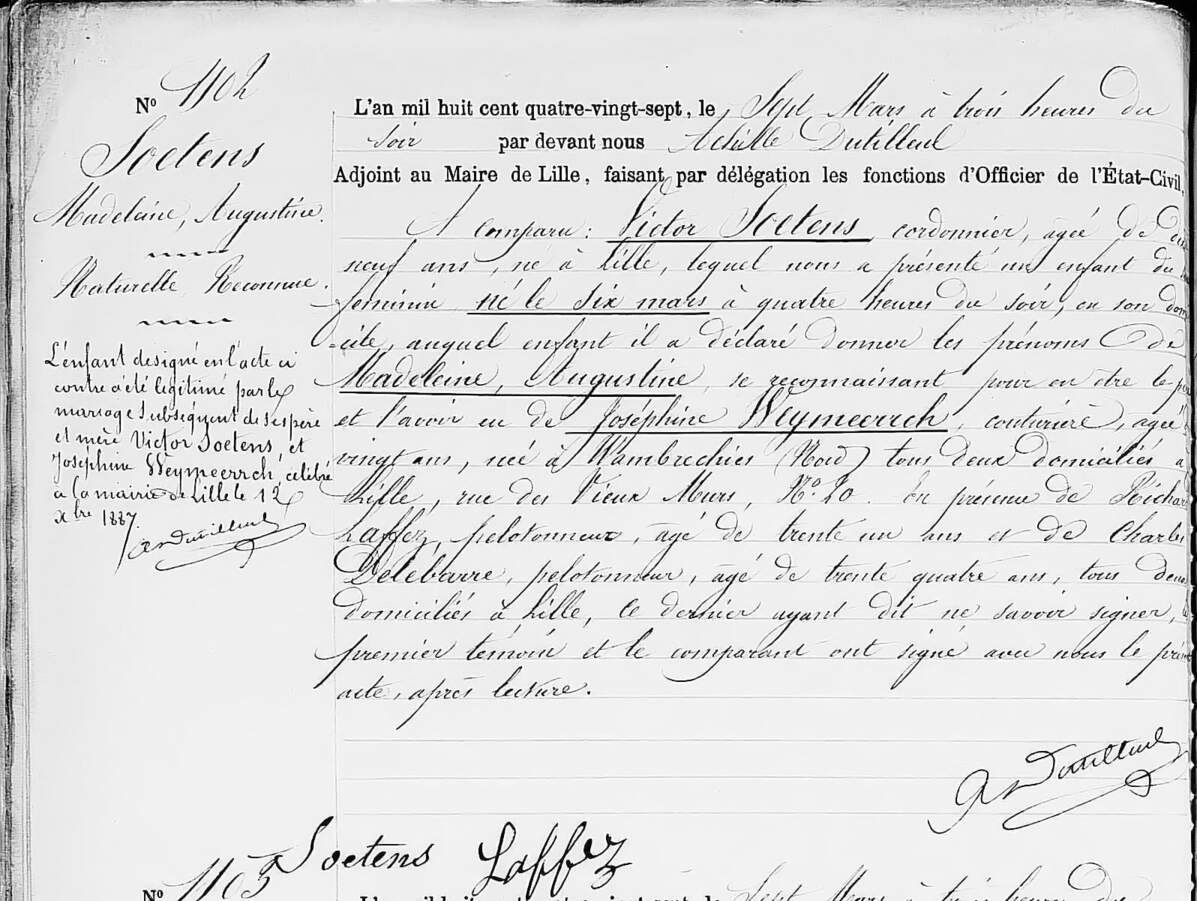 N° 1102
Soetens
Madeleine, Augustine.
Naturelle Reconnue.
L'enfant designé en l'acte ci
contre a été legitimé par le
mariage subséquent de ses père
et mère Victor Soetens, et
Joséphine Weymeerrch, célébré
a la mairie de Lille le 12
xbre 1887.
L'an mil huit cent quatre-vingt-sept, le Sept Mars à trois heures du
soir par devant nous Achille Dutilleul
Adjoint au Maire de Lille, faisant par délégation les fonctions d'Officier de l'État-Civil,
A comparu : Victor Soetens, cordonnier, agé de
neuf ans, né à Lille, lequel nous a présenté un enfant du
feminin né le six mars à quatre heures du soir, en son dom
cile, auquel enfant il a déclaré donner les prénoms de
Madeleine, Augustine, se reconnaissant pour en être le
et l'avoir eu de Joséphine Weymeerrch, couturière, agée
vingt ans, née à Wambrechies (Nord) tous deux domiciliés à
Lille, rue des Vieux Murs, N° 20. En présence de Richar
Laffez, pelotonneur, agé de trente un ans et de Charles
Delebarre, pelotonneur, agé de trente quatre ans, tous deux
domiciliés à Lille, ce dernier ayant dit ne savoir signer,
premier témoin et le comparant ont signé avec nous le
acte, après lecture.
A Dutilleul
Soetens Laffez
N° 1103
Sept Mars à trois heures du